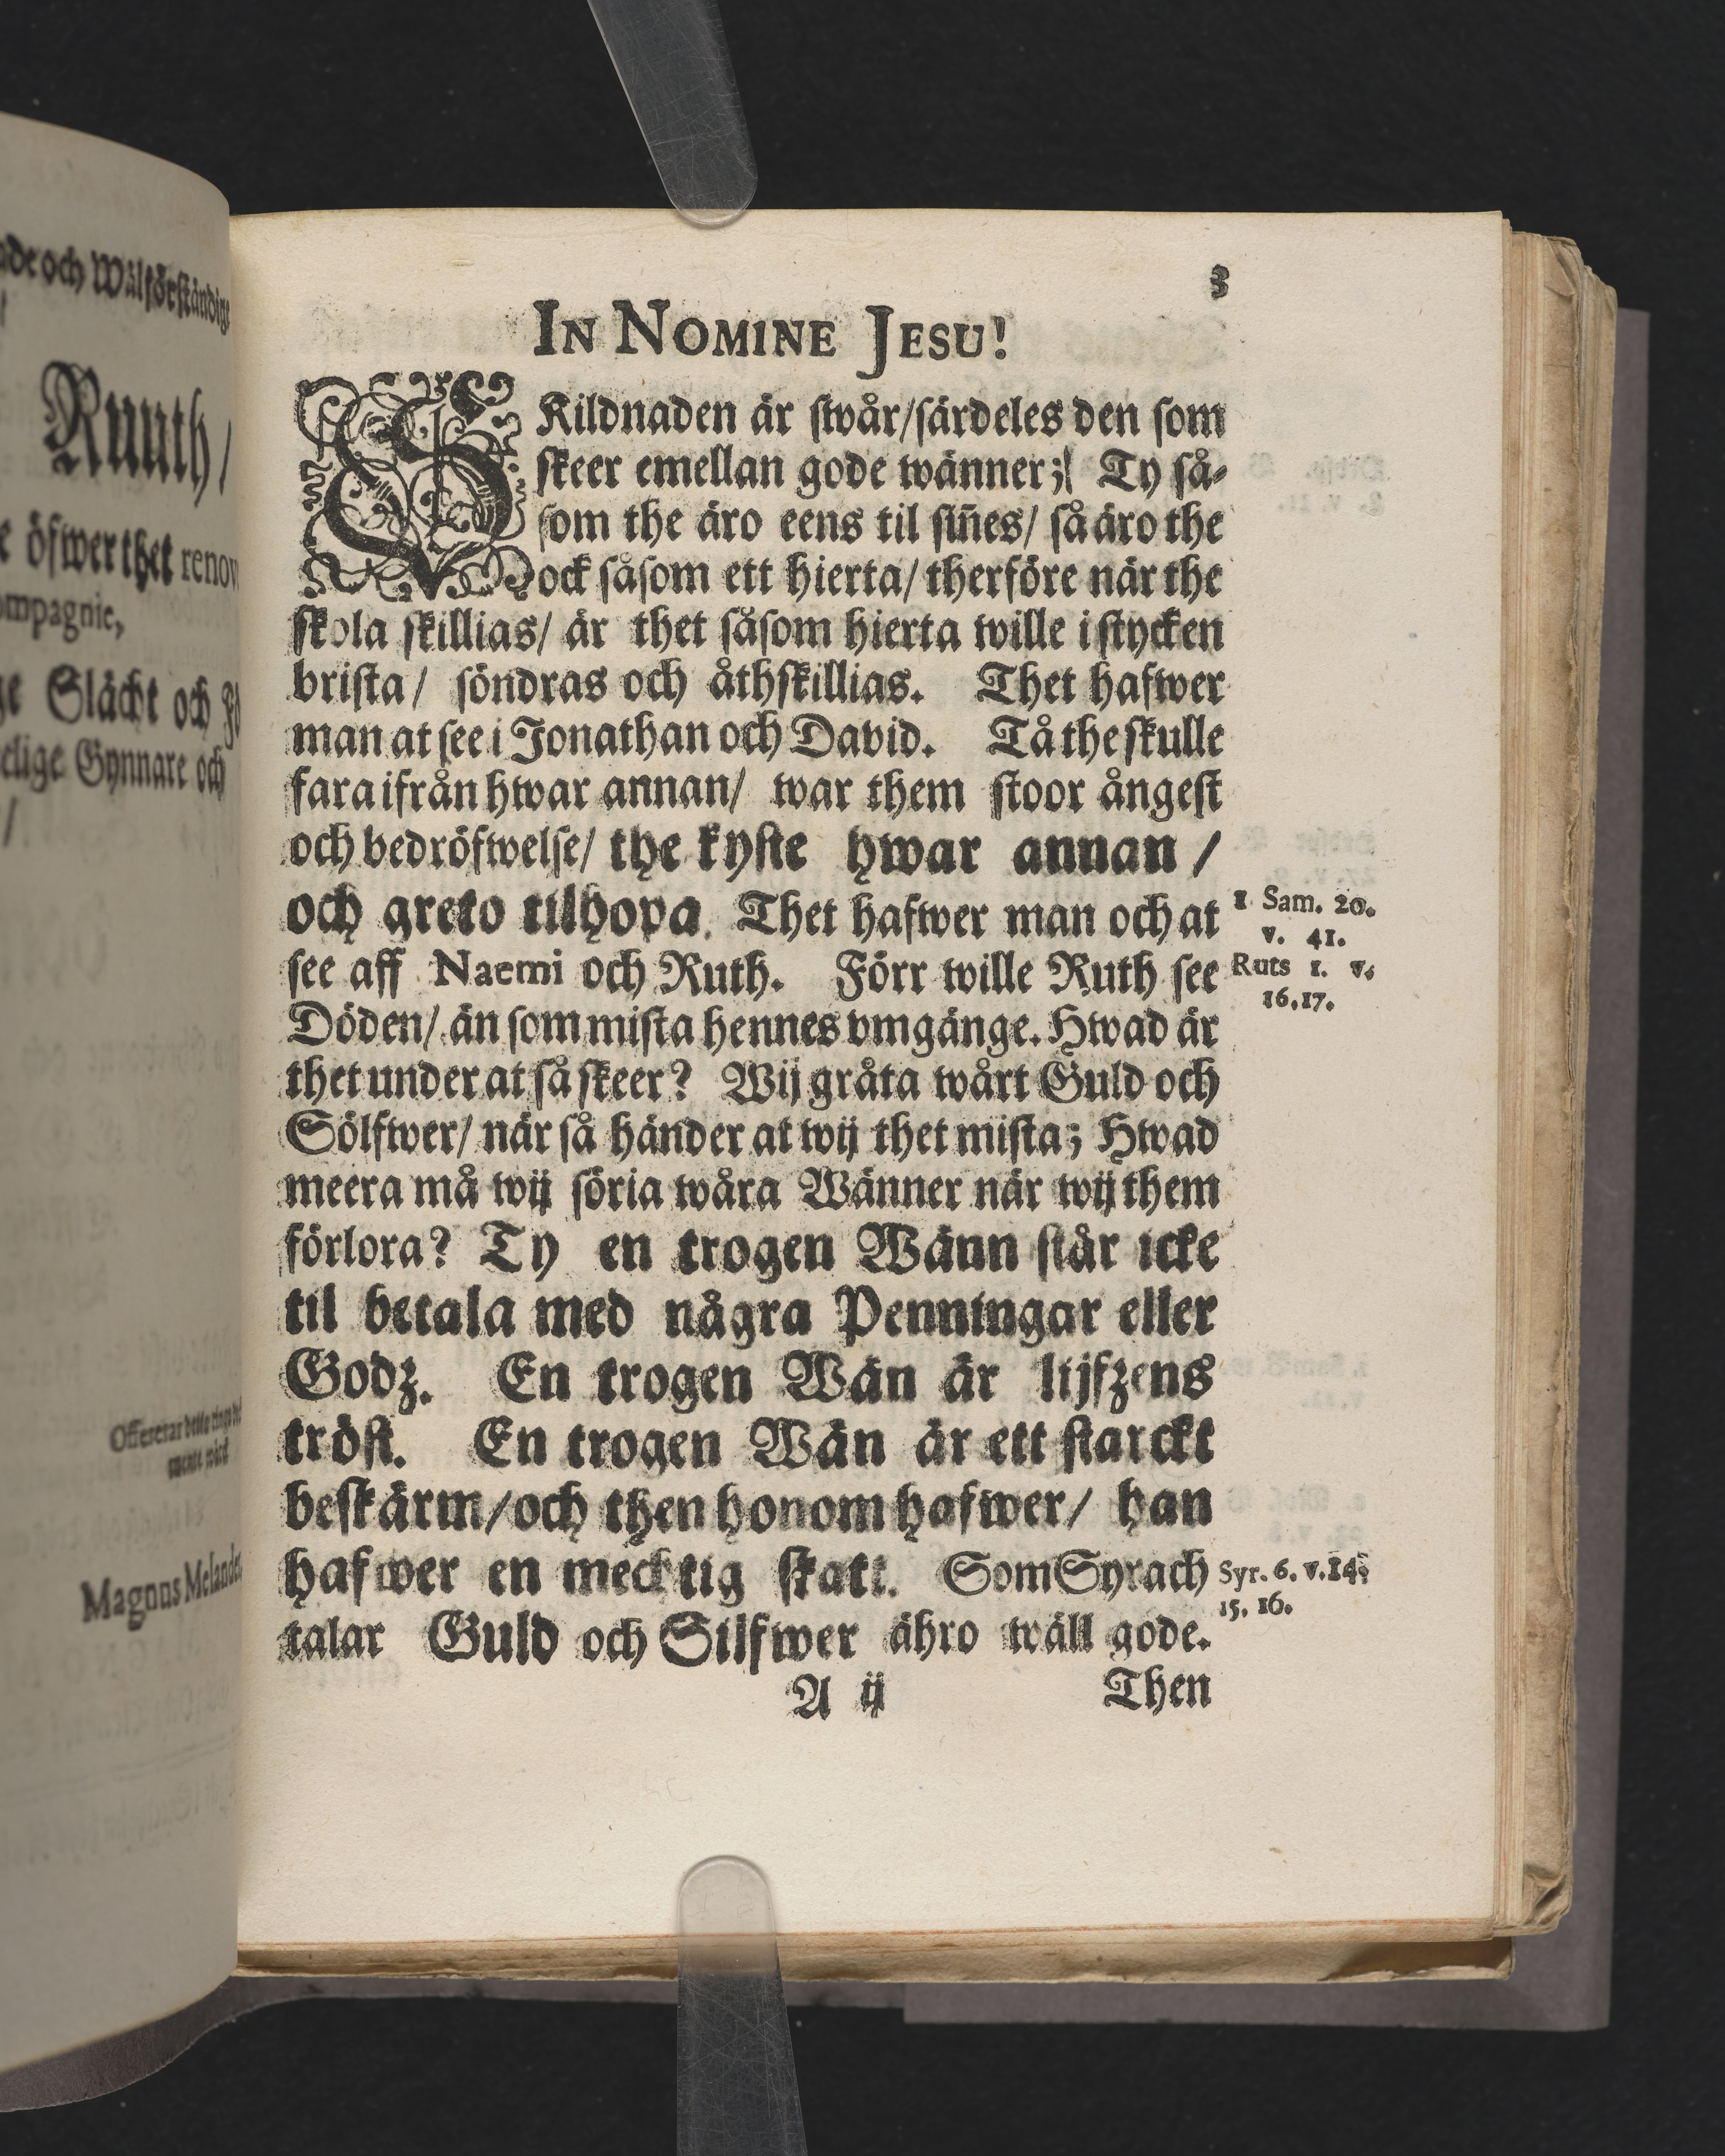 ade och Wälförständige
Ruuth /
öfwer thet renov
ompagnie,
ge Slächt och
elige Gynnare och
/
Offererar
Magnus Melander
3
IN NOMINE JESU!
SKildnaden är swår/särdeles den som
skeer emellan gode wänner; Ty så-
som the äro eens til siñes/ så äro the
ock såsom ett hierta/ therföre när the
skola skillias/ är thet såsom hierta wille i stycken
brista/ söndras och åthskillias. Thet hafwer
man at see i Jonathan och David. Tå the skulle
fara ifrån hwar annan/ war them stoor ångest
och bedröfwelse/ the kyste hwar annan /
och greto tilhopa. Thet hafwer man och at
1 Sam. 20.
v. 41.
see aff Naemi och Ruth. Förr wille Ruth see
Ruts 1. v.
16.17.
Döden/ än som mista hennes vmgänge. Hwad är
thet under at så skeer? Wij gråta wårt Guld och
Sölfwer/ när så händer at wij thet mista; Hwad
meera må wij söria wåra Wänner när wij them
förlora? Ty en trogen Wänn står icke
til betala med några Penningar eller
Godz. En trogen Wän är lijfzens
tröst. En trogen Wän är ett starckt
beskärm/och then honom hafwer/ han
hafwer en mechtig skatt. Som Syrach
Syr. 6. v.14.
15. 16.
talar Guld och Silfwer ähro wäll gode.
A ij Then